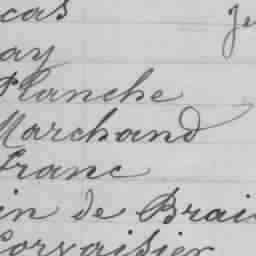 cas Je
ay
Planche
Marchand
Franc
in de Brai
Corvaisier